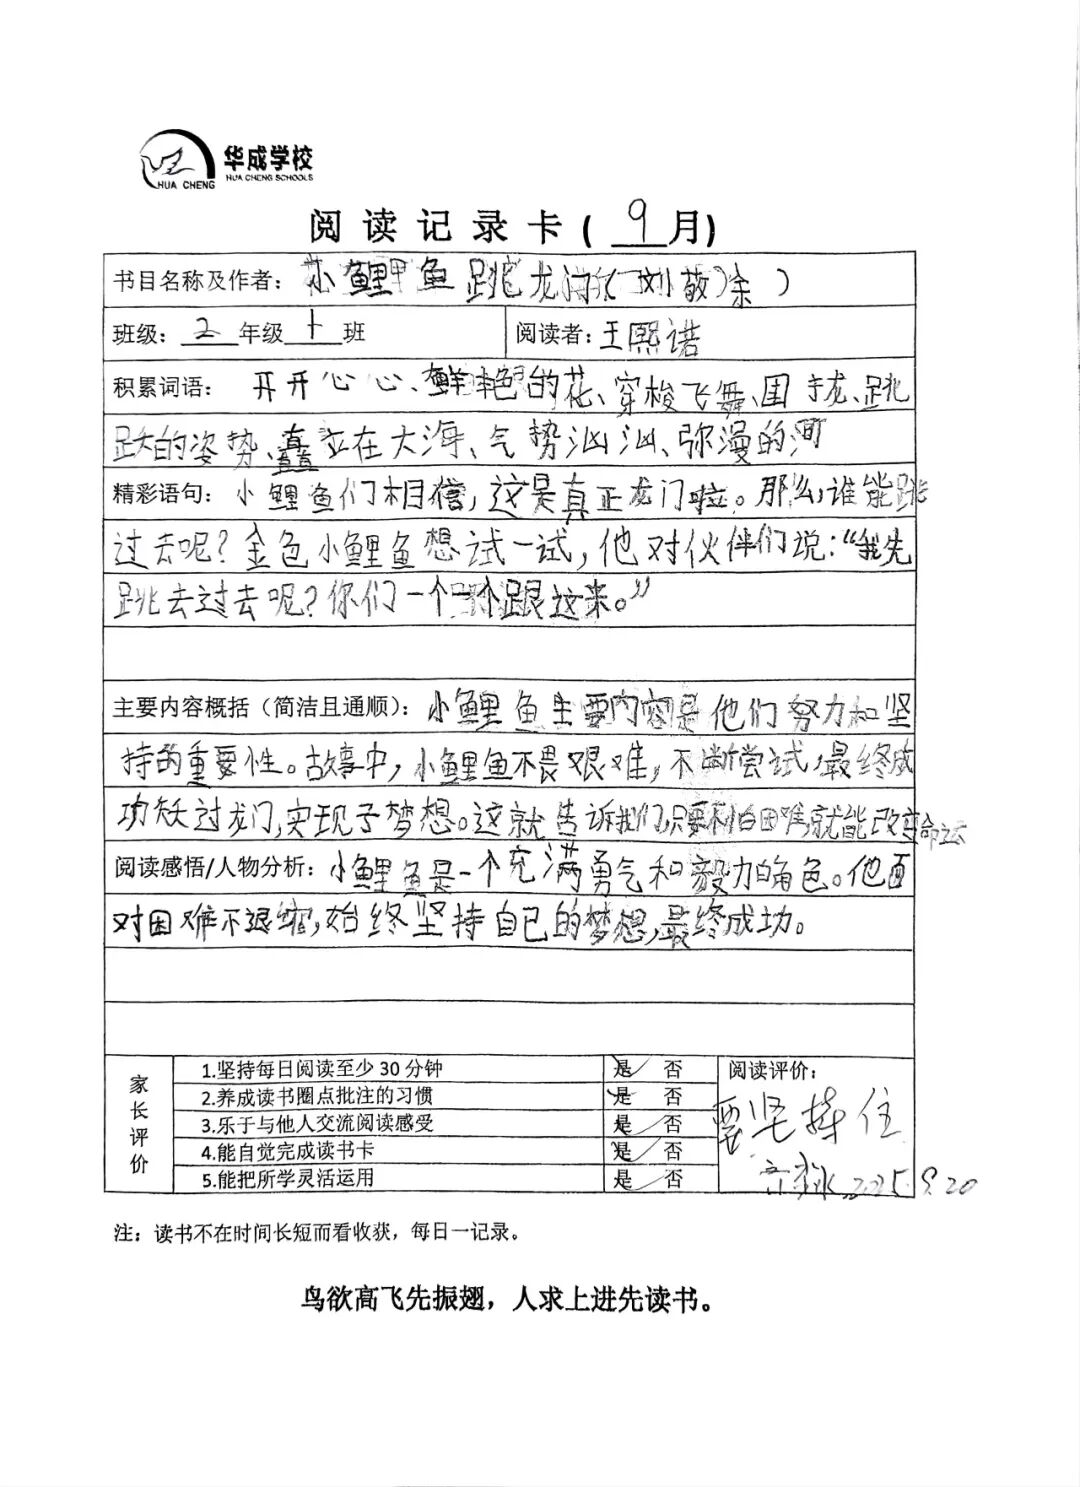 华成学校
HUA CHENG SCHOOLS
HUA CHENG
阅读记录卡(9月)
书目名称及作者：小鲤鱼跳龙门(刘敬余)
班级：2年级十班 阅读者：王熙诺
积累词语：开开心心、鲜艳的花、穿梭飞舞、跳
跃的姿势、矗立在大海、气势汹汹、弥漫的河
精彩语句：小鲤鱼们相信，这是真正龙门啦。那么，谁能跳
过去呢？金色小鲤鱼想试一试，他对伙伴们说：“我先
跳去过去呢？你们一个一个跟这来。”
主要内容概括（简洁且通顺）：小鲤鱼主要内容是他们努力和坚
持的重要性。故事中，小鲤鱼不畏艰难，不断尝试，最终成
功跃过龙门，实现了梦想。这就告诉我们，只要不怕困难就能改变命运
阅读感悟/人物分析：小鲤鱼是一个充满勇气和毅力的角色。他面
对困难不退缩，始终坚持自己的梦想，最终成功。
家长评价
1.坚持每日阅读至少30分钟 是✓ 否
2.养成读书圈点批注的习惯 是✓ 否
3.乐于与他人交流阅读感受 是✓ 否
4.能自觉完成读书卡 是✓ 否
5.能把所学灵活运用 是✓ 否
阅读评价：
要坚持住
2025.9.20
注：读书不在时间长短而看收获，每日一记录。
鸟欲高飞先振翅，人求上进先读书。